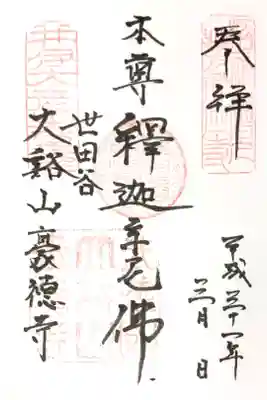 奉拝
平成三十一年
三月 日
本尊
釋迦牟尼佛
世田谷
大谿山豪德寺